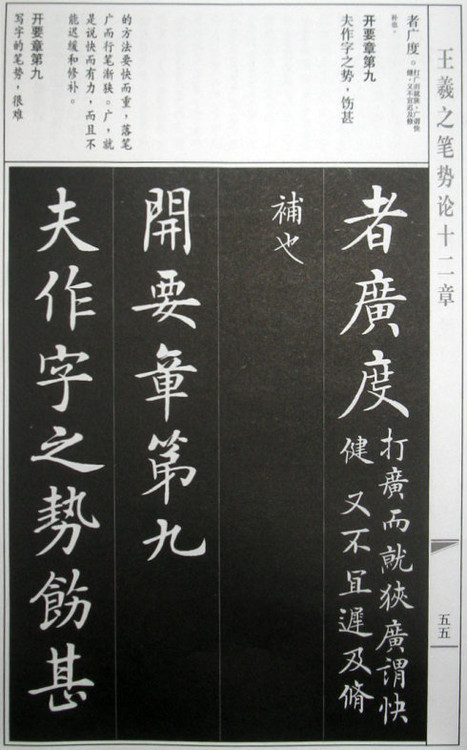 王羲之笔势论十二章
五五
者广度。
打广而就狭。广谓快
健,又不宜迟及修
补也。
开要章第九
夫作字之势,饬甚
的方法要快而重,落笔
广而行笔渐狭。广,就
是说快而有力,而且不
能迟缓和修补。
开要章第九
写字的笔势,很难
者廣度
打廣而就狹廣謂快
健又不宜遲及脩
補也
開要章第九
夫作字之勢飭甚